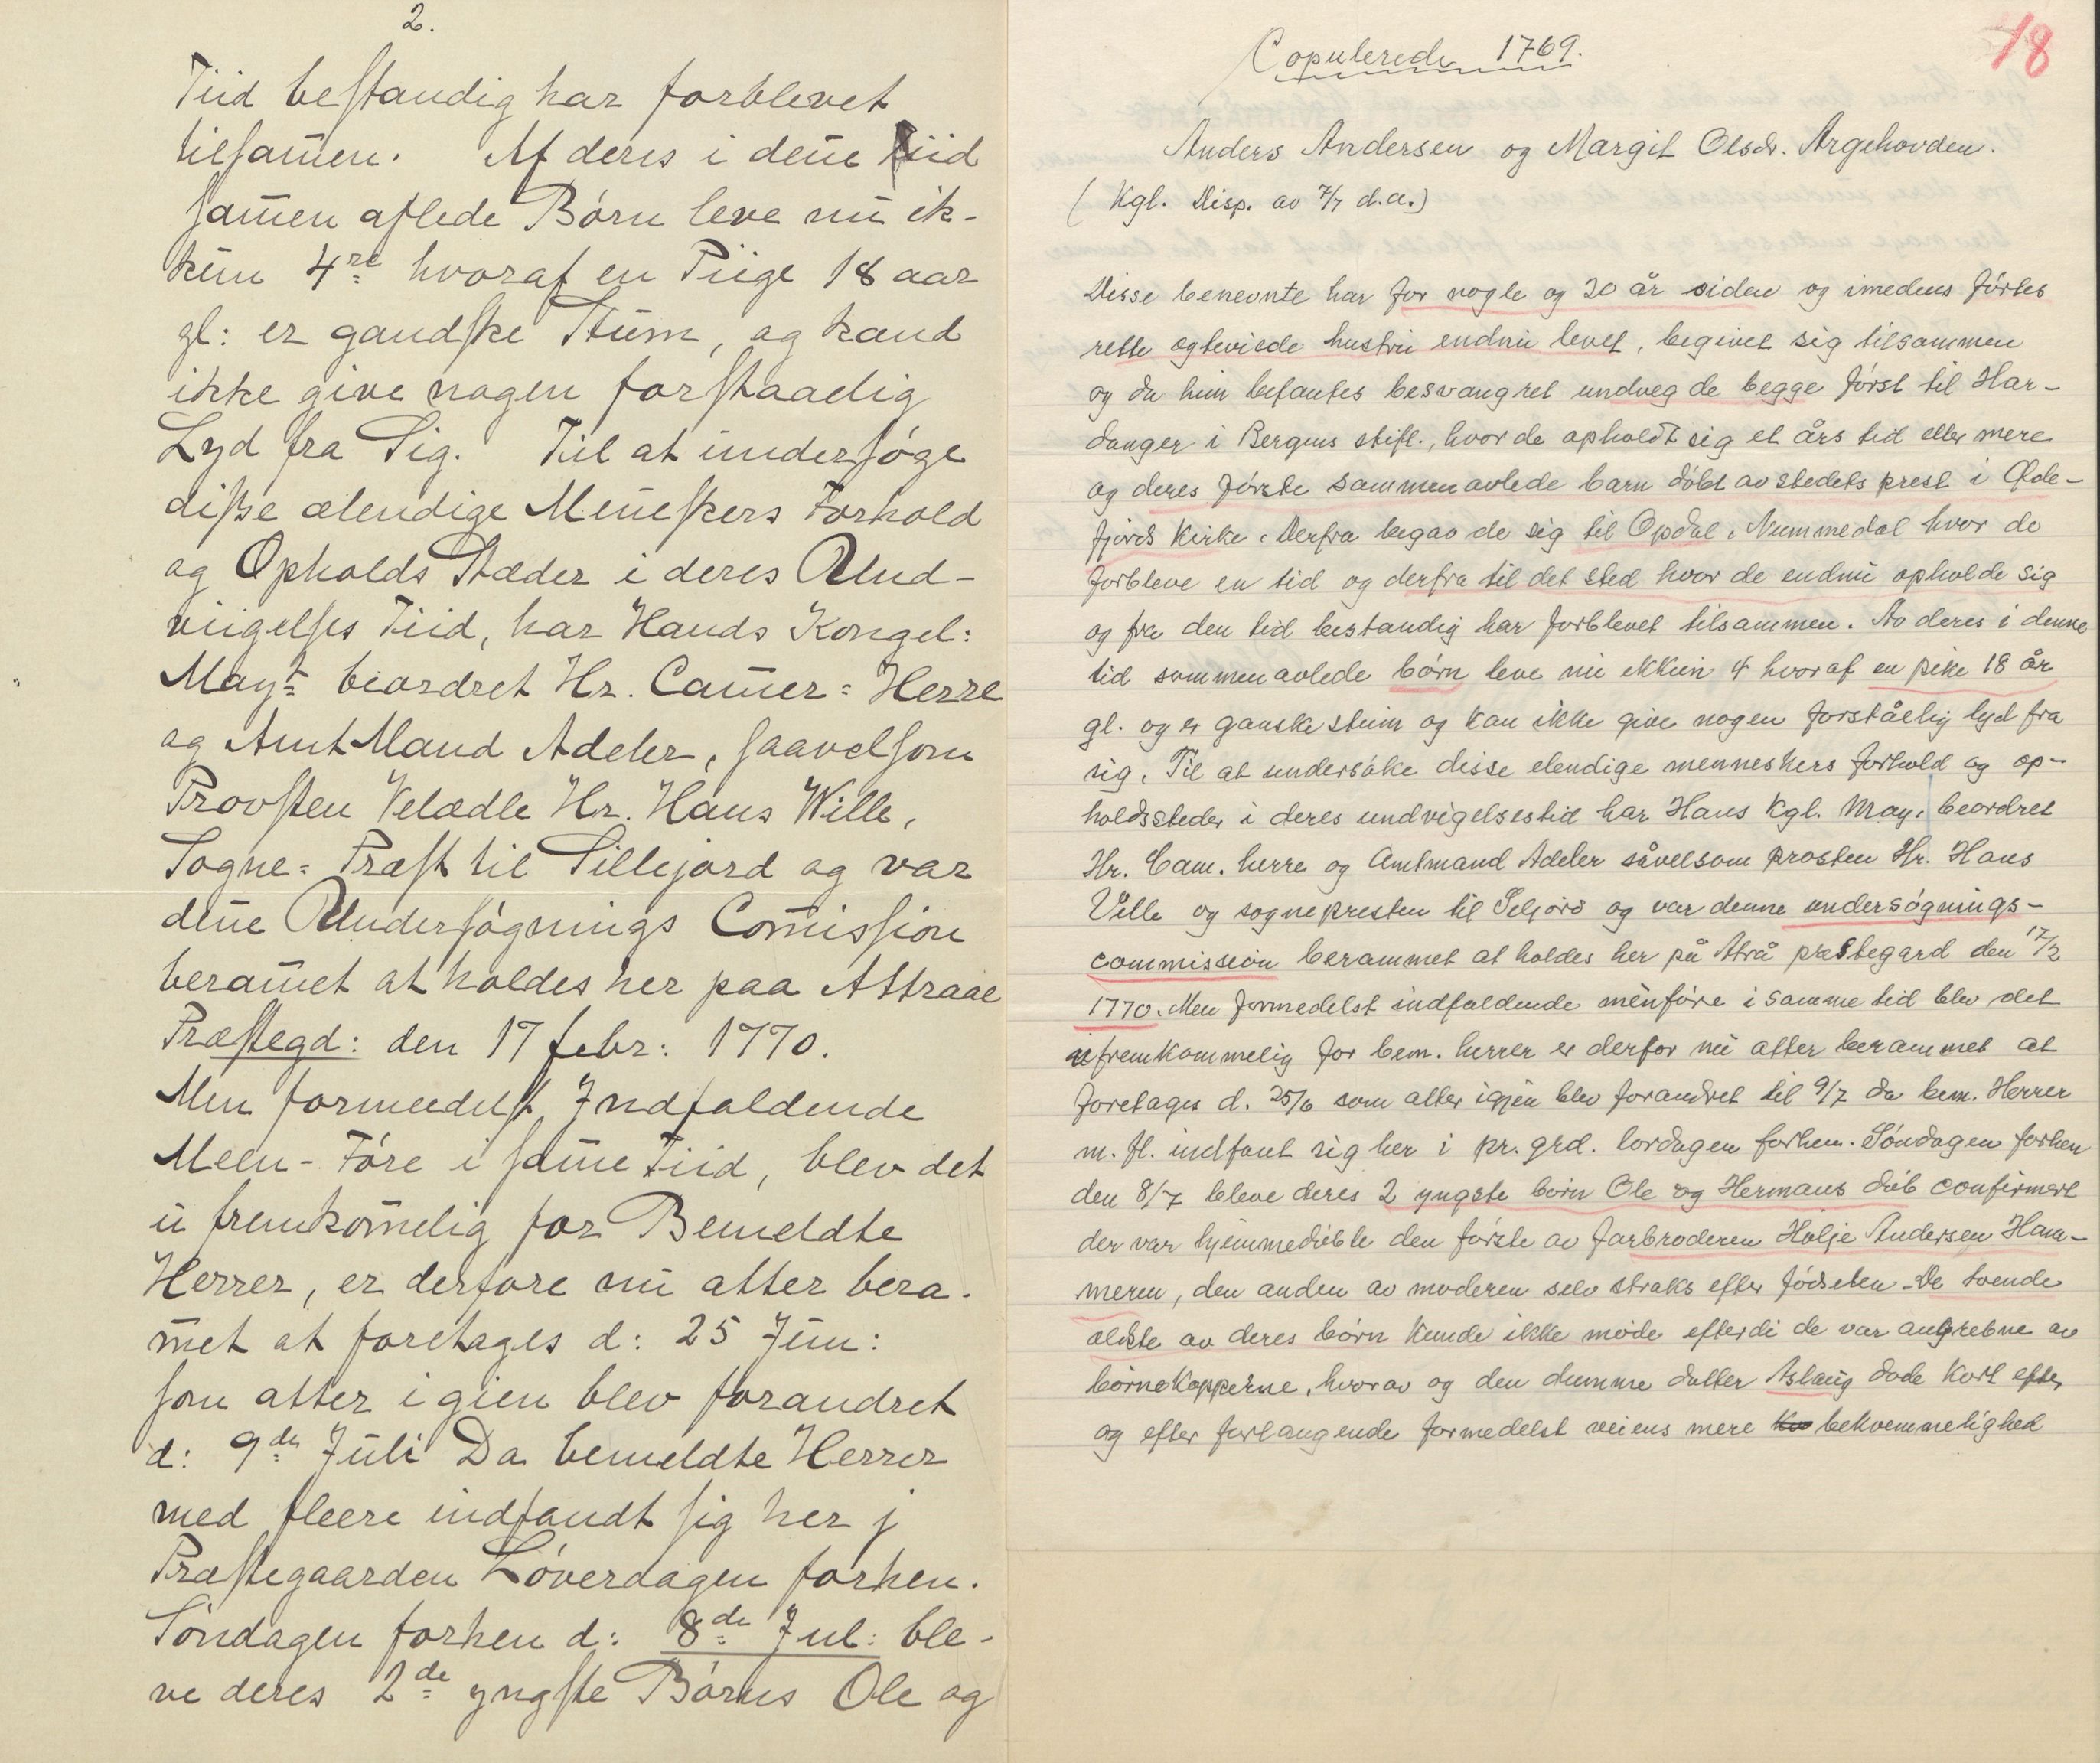 2.
Tiid beſtandig har forblevet
tilſam̄en. Af deres i den̄e Tiid
ſam̄en aflede Børn leve nu ik-
kun 4re hvoraf en Piige 18 aar
gl: er gandſke Stum, og kand
ikke give nogen forſtaaelig
Lyd fra Sig. Til at underſøge
diſse ælendige Men̄eſkers Forhold
og Opholds Stæder i deres Und-
viigelſes Tiid, har Hands Kongel:
Mayt beordret Hr. Cam̄er = Herre
og AmtMand Adeler, ſaavelſom
Provſten Velædle Hr. Hans Wille,
Sogne = Præſt til Sillejord og var
den̄e Underſøgnings Com̄isſion
beram̄et at holdes her paa Attraae
Præſtegd: den 17 febr: 1770.
Men formeedelſt Indfaldende
Meen-Føre i ſam̄e Tiid, blev det
u fremkom̄elig for Bemeldte
Herrer, er derfore nu atter bera-
m̄et at foretages d: 25 Jun:
ſom atter i gien blev forandret
d: 9de Juli Da bemeldte Herrer
med fleere indfandt ſig her j
Præſtegaarden Løverdagen forhen.
Søndagen forhen d: 8de Jul: ble-
ve deres 2de yngſte Børns Ole og
18
Copulerede 1769.
Anders Andersen og Margit Olsdr. Argehovden.
(Kgl. Disp. av 7/7 d.a.)
Disse benevnte har for nogle og 20 år siden og imedens førtes
rette egteviede hustru endnu levet, begivet sig tilsammen
og da hun befantes besvangret undveg de begge først til Har-
danger i Bergens stift., hvor de opholdt sig et års tid eller mere
og deres første sammenavlede barn døbt av stedets prest i Ode-
fjords Kirke. Derfra begav de sig til Opdal i Nummedal hvor de
forbleve en tid og derfra til det sted hvor de endnu opholde sig
og fra den tid bestandig har forblevet tilsammen. Av deres i denne
tid sammenavlede børn leve nu ikkun 4 hvoraf en pike 18 år
gl. og er ganske stum og kan ikke give nogen forståelig lyd fra
sig. Til at undersøke disse elendige menneskers forhold og op-
holdssteder i deres undvigelsestid har Hans Kgl. May. beordret
Hr. Cam. herre og Amtmand Adeler såvelsom prosten Hr. Hans
Ville og sognepresten til Seljord og var denne undersøgnings-
commission berammet at holdes her på Atrå præstegard den 17/2
1770. Men formedelst indfaldende menføre i samme tid blev det
ufremkommelig for bem. herrer er derfor nu atter berammet at
foretages d. 25/6 som atter igjen blev forandret til 9/7 da bem. Herrer
m. fl. indfant sig her i pr. grd. lordagen forhen. Søndagen forhen
den 8/7 bleve deres 2 yngste børn Ole og Hermans dåb confirmert
der var hjemmedøbte den første av farbroderen Holje Andersen Ham-
meren, den anden av moderen selv straks efter fødselen. De tvende
eldste av deres børn kunde ikke møde efterdi de var angrebne av
børnekopperne, hvorav og den dumme datter Aslaug døde kort efter
og efter forlangende formedelst veiens mere bekvemmelighed